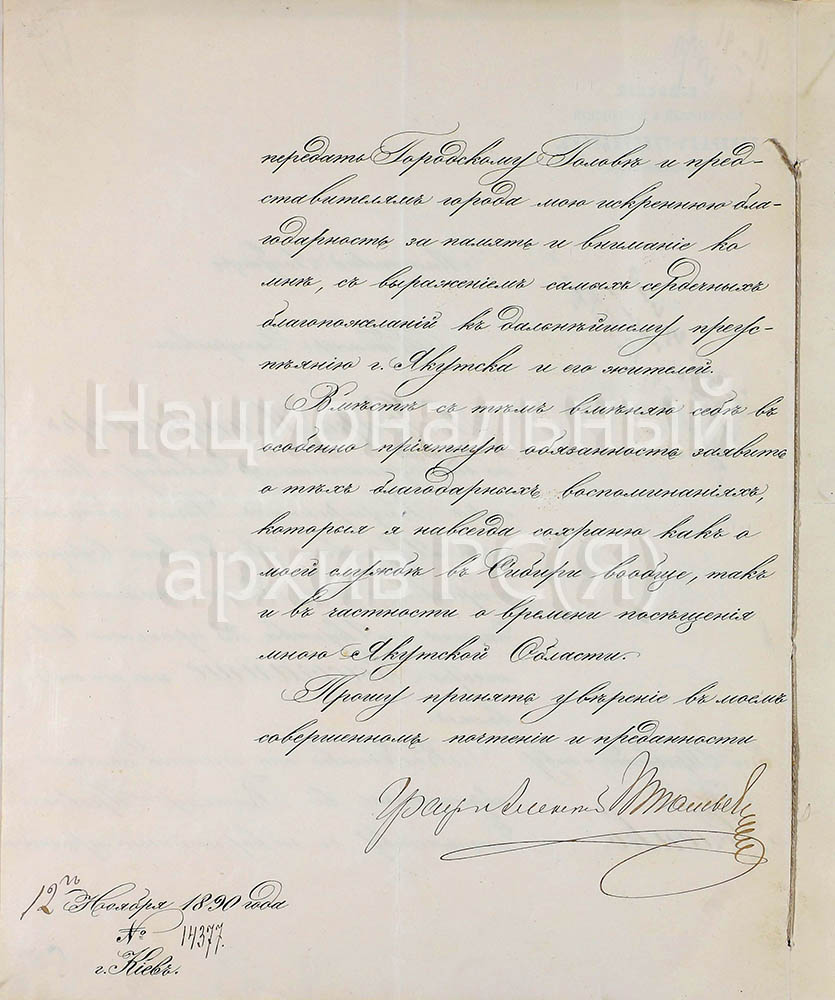 передать Городскому Головѣ и пред-
ставителямъ города мою искреннюю бла-
годарность за память и вниманіе ко
мнѣ, съ выраженіемъ самыхъ сердечныхъ
благопожеланій къ дальнѣйшему преус-
пѣянію г. Якутска и его жителей.
Вмѣстѣ съ тѣмъ вмѣняю себѣ въ
особенно пріятную обязанность заявить
о тѣхъ благодарныхъ воспоминаніяхъ,
которыя я навсегда сохраню какъ о
моей службѣ въ Сибири вообще, такъ
и въ частности о времени посѣщенія
мною Якутской Области.
Прошу принять увѣреніе въ моемъ
совершенномъ почтеніи и преданности
Графъ Алексѣй Игнатьевъ
12го Ноября 1890 года
№ 14377.
г. Кіевъ.
Национальный
архив РС(Я)